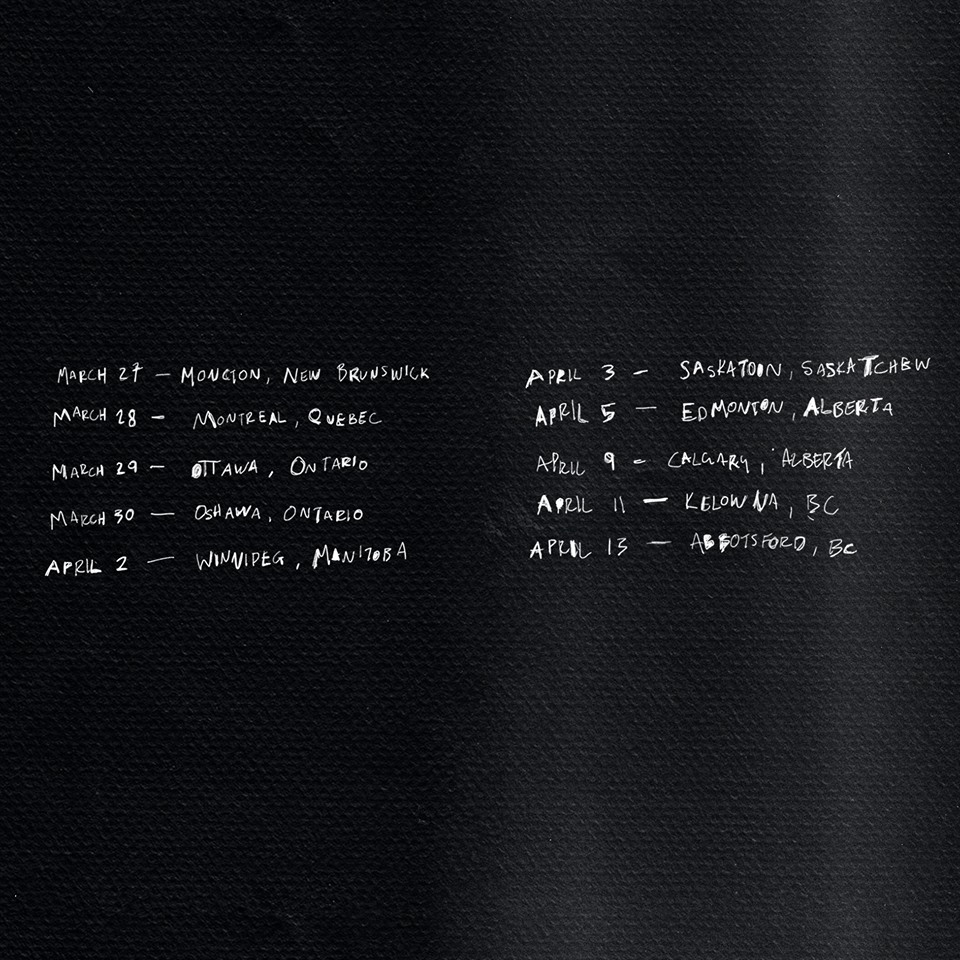 MARCH 27 — MONCTON, NEW BRUNSWICK
MARCH 28 — MONTREAL, QUEBEC
MARCH 29 — OTTAWA, ONTARIO
MARCH 30 — OSHAWA, ONTARIO
APRIL 2 — WINNIPEG, MANITOBA
APRIL 3 — SASKATOON, SASKATCHEW
APRIL 5 — EDMONTON, ALBERTA
APRIL 9 — CALGARY, ALBERTA
APRIL 11 — KELOWNA, BC
APRIL 13 — ABBOTSFORD, BC